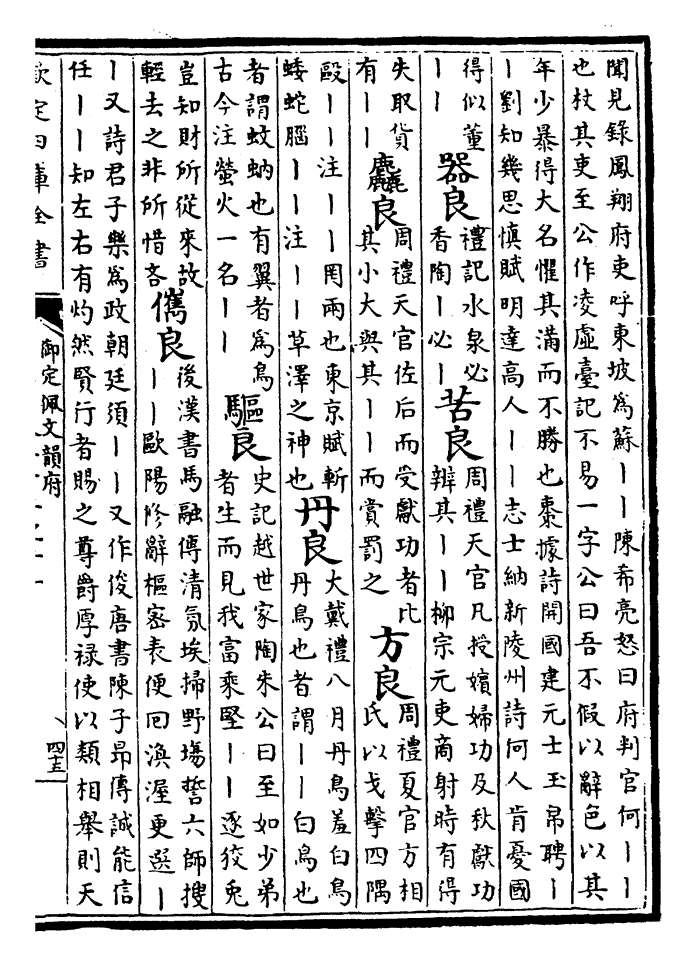 聞見録鳳翔府吏呼東坡為蘇丨丨陳希亮怒曰府判官何丨丨
也杖其吏至公作凌虛臺記不易一字公曰吾不假以辭色以其
年少暴得大名懼其滿而不勝也棗據詩開國建元士玉帛聘丨
丨劉知幾思慎賦明達高人丨丨志士納新陵州詩何人肯憂國
得似董
丨丨
器良
禮記水泉必
香陶丨必丨
苦良
周禮天官凡授嬪婦功及秋獻功
辨其丨丨柳宗元吏商射時有得
失取貨
有丨丨
麤良
周禮天官佐后而受獻功者比
其小大與其丨丨而賞罰之
方良
周禮夏官方相
氏以戈擊四隅
毆丨丨注丨丨罔兩也東京賦斬
蜲蛇腦丨丨注丨丨草澤之神也
丹良
大戴禮八月丹鳥羞白鳥
丹鳥也者謂丨丨白鳥也
者謂蚊蚋也有翼者為鳥
古今注螢火一名丨丨
驅良
史記越世家陶朱公曰至如少弟
者生而見我富乘堅丨丨逐狡兔
豈知財所從來故
輕去之非所惜吝
儁良
後漢書馬融傳清氛埃掃野場誓六師搜
丨丨歐陽修辭樞密表便回渙渥更選丨
丨又詩君子樂為政朝廷須丨丨又作俊唐書陳子昂傳誠能信
任丨丨知左右有灼然賢行者賜之尊爵厚禄使以類相舉則天
欽定四庫全書
御定佩文韻府
四十五